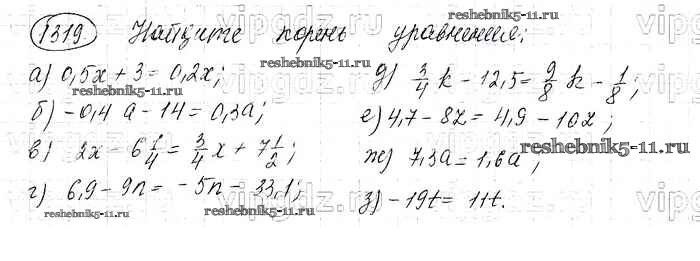 1319 Найдите корень уравнения;
а) 0,5x + 3 = 0,2x;
б) -0,4a - 14 = 0,3a;
в) 2x - 6 1/4 = 3/4 x + 7 1/2;
г) 6,9 - 9n = -5n - 33,1;
д) 3/4 k - 12,5 = 9/8 k - 1/8;
е) 4,7 - 8z = 4,9 - 10z;
ж) 7,3a = 1,6a;
з) -19t = 11t.
reshebnik5-11.ru
reshebnik5-11.ru
reshebnik5-11.ru
reshebnik5-11.ru
reshebnik5-11.ru
reshebnik5-11.ru
vipgdz.ru
vipgdz.ru
vipgdz.ru